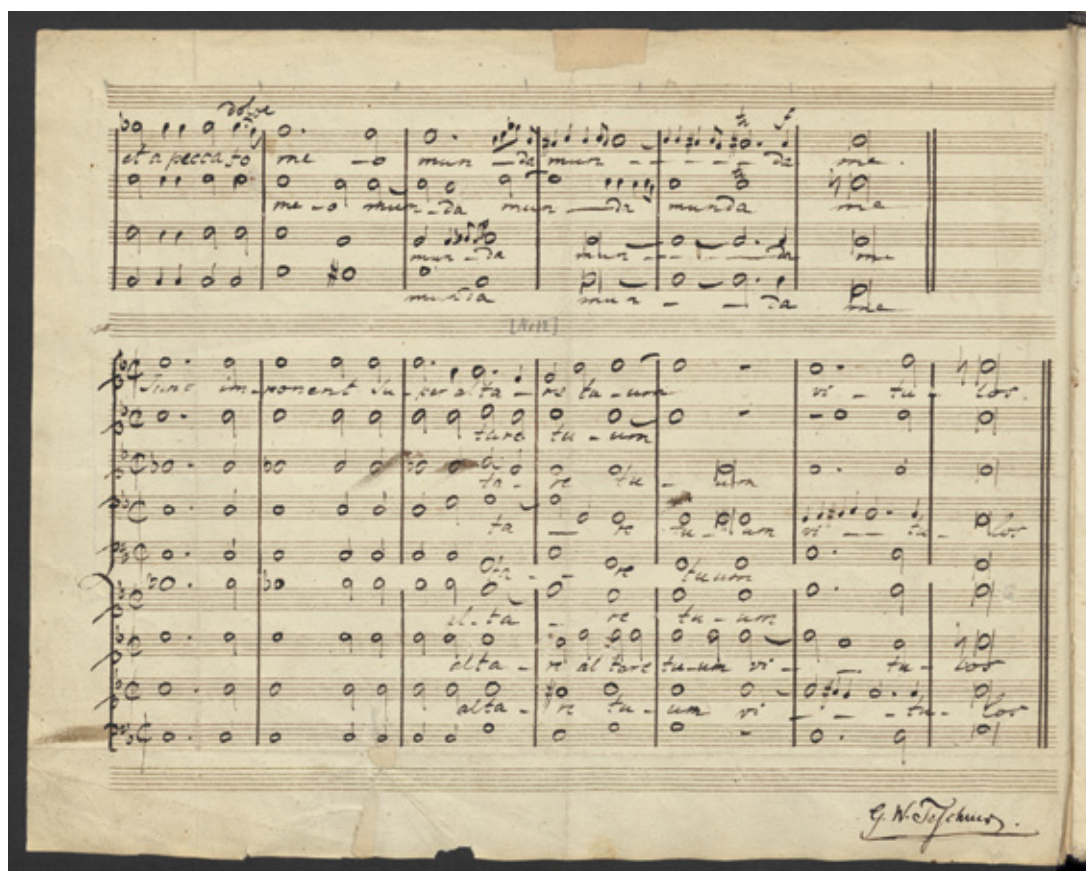 dolce
f
et a peccato me - o mun - da mun - - - - - da me.
me - o mun - da mun - da munda me
mun - da mun - - - - da me
munda mun - - da me
[No 12]
Tunc im - ponent su - per alta - re tu - um vi - tu - los.
tare tu - um
ta - re tu - um
ta - re tu - um vi - - tu - los
ta - - re tuum
al - ta - re tu - um
alta - re al tare tu - um vi - - tu - los
alta - re tu - um vi - - - tu - los
G. W. Teschner.